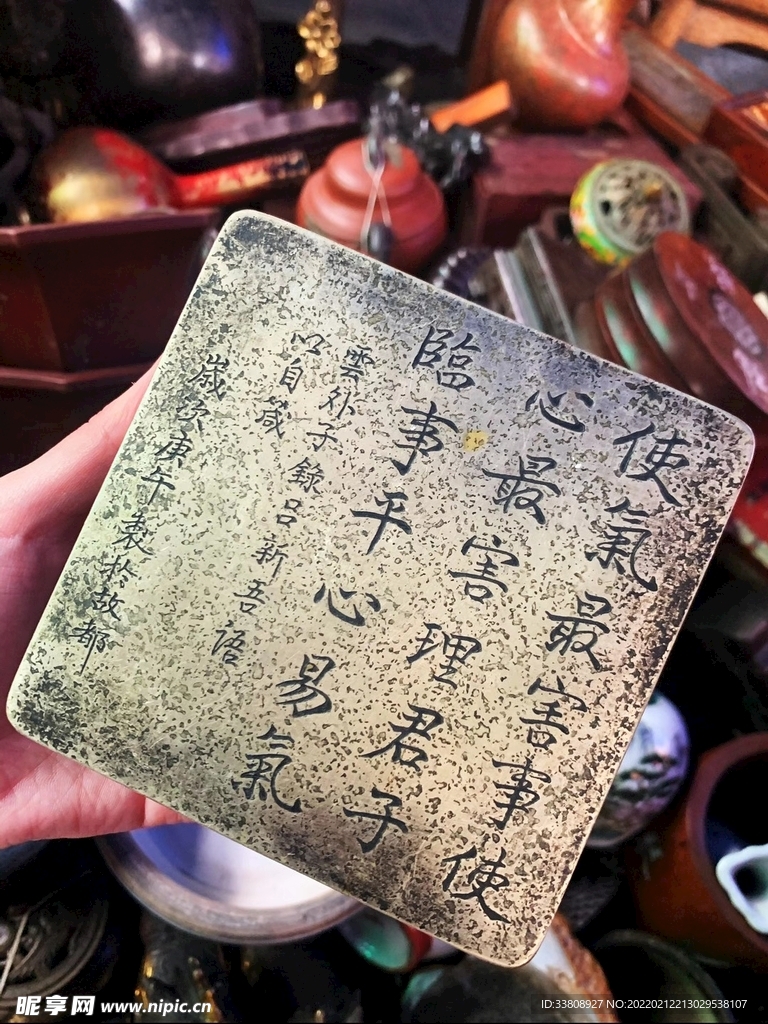 使氣最害事使
心最害理君子
臨事平心易氣
雲外子錄呂新吾語
以自箴
歲次庚午製於故都
昵享网 www.nipic.cn
ID:33808927 NO:20220212213029538107